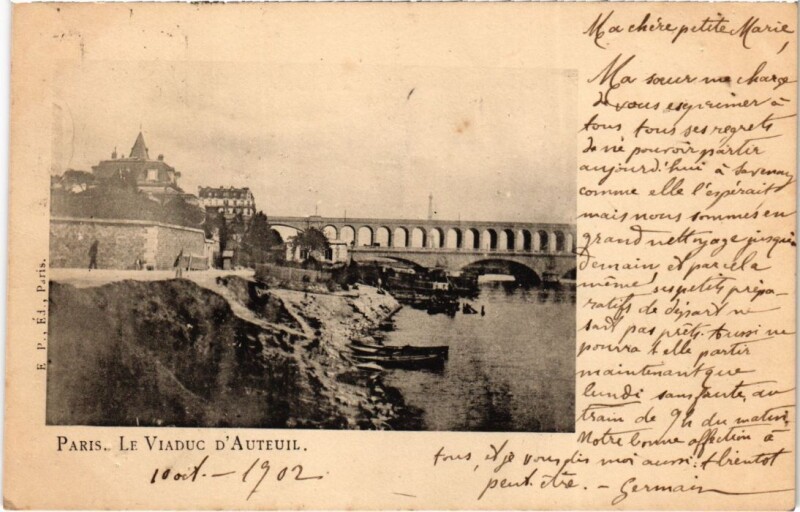 Ma chère petite Marie,
Ma sœur me charge
de vous exprimer à
tous tous ses regrets
de ne pouvoir partir
aujourd'hui à Savenay
comme elle l'espérait
mais nous sommes en
grand nettoyage jusqu'à
demain et par cela
même ses petits prépa-
ratifs de départ ne
sont pas prêts. Aussi ne
pourra t elle partir
maintenant que
lundi sans faute, au
train de 9h du matin.
Notre bonne affection à
tous, et je vous dis moi aussi: A bientôt
peut être. - Germain
E. P., Éd., Paris.
PARIS. LE VIADUC D'AUTEUIL.
10 oct. - 1902